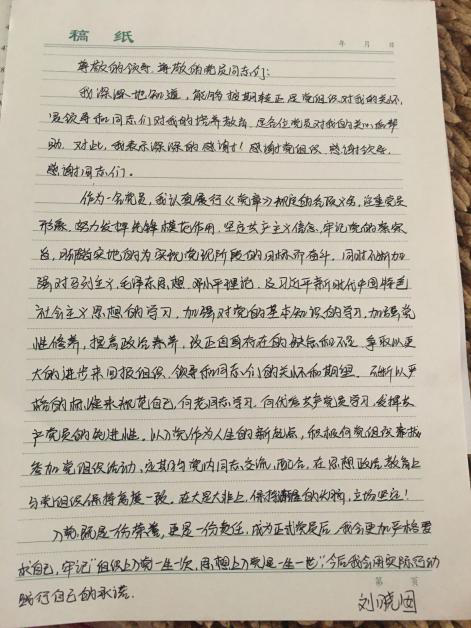 稿 纸
年 月 日
尊敬的领导，尊敬的党员同志们：
我深深地知道，能够按期转正是党组织对我的关怀，
是领导和同志们对我的培养教育，是各位党员对我的关心和帮
助。对此，我表示深深的感谢！感谢党组织，感谢领导，
感谢同志们。
作为一名党员，我认真履行《党章》规定的各项义务，注重党员
形象，努力发挥先锋模范作用，坚定共产主义信念，牢记党的宗
旨，踏踏实地的为实现党现阶段的目标而奋斗。同时不断加
强对马列主义，毛泽东思想，邓小平理论，及习近平新时代中国特色
社会主义思想的学习，加强对党的基本知识的学习，加强党
性修养，提高政治素养，改正自身存在的缺点和不足，争取以更
大的进步来回报组织、领导和同志们的关怀和期望。不断以严
格的标准来规范自己，向老同志学习，向优秀共产党员学习，发挥共
产党员的先进性。以入党作为人生的新起点，积极向党组织靠拢
参加党组织活动，定期与党内同志交流，配合，在思想政治教育上
与党组织保持高度一致。在大是大非上，保持清醒的头脑，立场坚定！
入党，既是一份荣誉，更是一份责任，成为正式党员后，我会更加严格要
求自己，牢记“组织上入党一生一次，思想上入党是一生一世”，今后我会用实际行动
践行自己的承诺。
第 页
刘晓